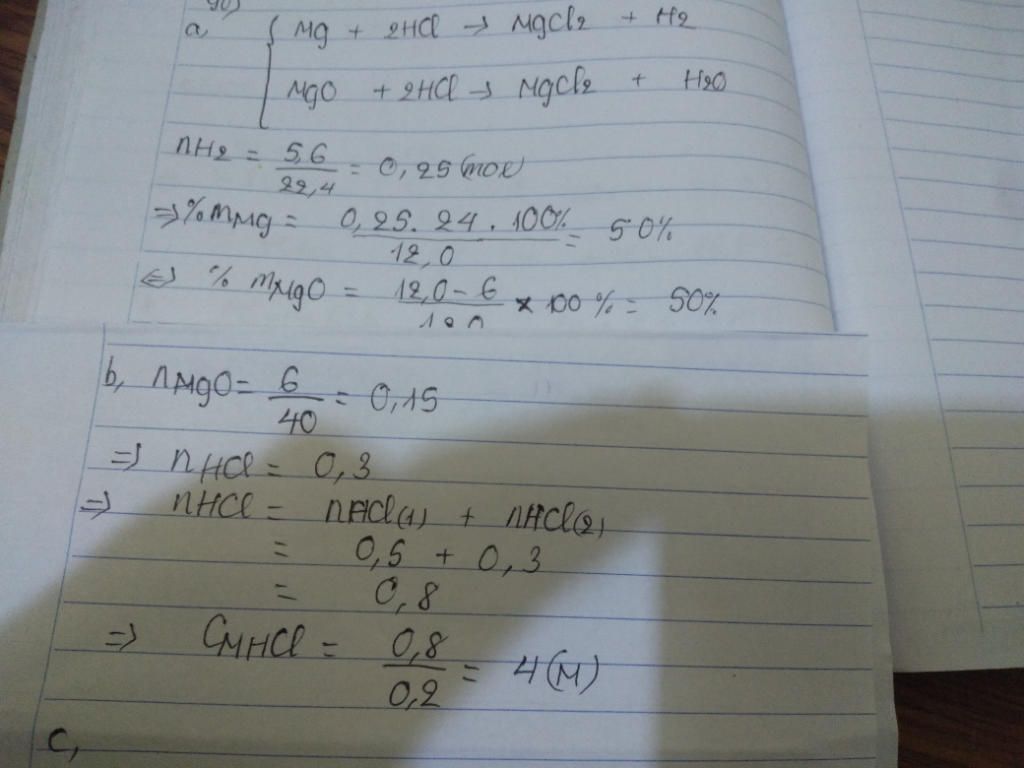 a, { Mg + 2HCl → MgCl2 + H2
MgO + 2HCl → MgCl2 + H2O
nH2 = 5,6/22,4 = 0,25 (mol)
=> % mMg = 0,25. 24 . 100%/12,0 = 50%
<=> % mMgO = 12,0 - 6/12,0 × 100 % = 50%
b, nMgO = 6/40 = 0,15
=> nHCl = 0,3
=> nHCl = nHCl(1) + nHCl(2)
= 0,5 + 0,3
= 0,8
=> CMHCl = 0,8/0,2 = 4 (M)
c,